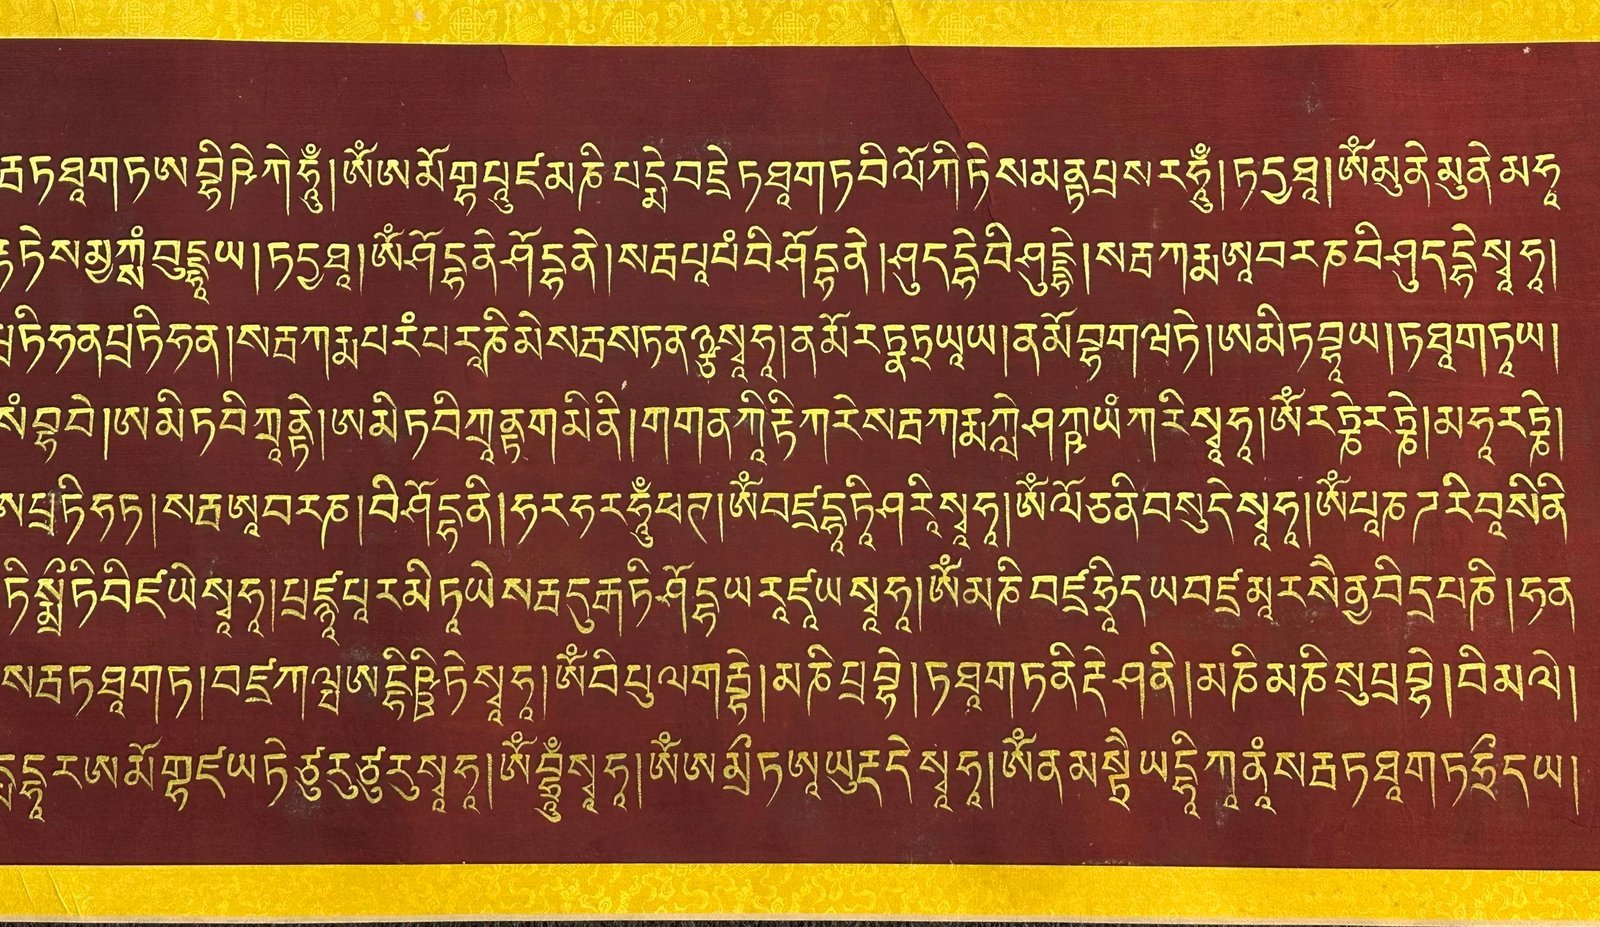 རྦ་ཏ་ཐཱ་ག་ཏ་ཨ་བྷི་ཥེ་ཀེ་ཧཱུྃ།ཨོཾ་ཨ་མོ་གྷ་པཱུ་ཛ་མ་ཎི་པདྨེ་བཛྲེ་ཏ་ཐཱ་ག་ཏ་བི་ལོ་ཀི་ཏེ་ས་མནྟ་པྲ་ས་ར་ཧཱུྃ།ཏདྱ་ཐཱ།ཨོཾ་མུ་ནེ་མུ་ནེ་མ་ཧཱ
ཏེ་ས་མྱ་ཀྶཾ་བུདྡྷཱ་ཡ།ཏདྱ་ཐཱ།ཨོཾ་ཤོ་དྷ་ནེ་ཤོ་དྷ་ནེ།སརྦ་པཱ་པཾ་བི་ཤོ་དྷ་ནེ།ཤུད་དྷེ་བི་ཤུདྡྷེ།སརྦ་ཀརྨ་ཨཱ་བ་ར་ཎ་བི་ཤུད་དྷེ་སྭཱ་ཧཱ།
པྲ་ཏི་ཧ་ན་པྲ་ཏི་ཧ་ན།སརྦ་ཀརྨ་པ་རཾ་པ་རཱ་ཎི་མེ་སརྦ་ས་ཏ་ནཉྩ་སྭཱ་ཧཱ།ན་མོ་རཏྣ་ཏྲ་ཡཱ་ཡ།ན་མོ་བྷ་ག་ཝ་ཏེ།ཨ་མི་ཏ་བྷཱ་ཡ།ཏ་ཐཱ་ག་ཏཱ་ཡ།
སཾ་བྷ་བེ།ཨ་མི་ཏ་བི་ཀྲཱནྟེ།ཨ་མི་ཏ་བི་ཀྲཱནྟ་ག་མི་ནི།ག་ག་ན་ཀཱིརྟི་ཀ་རེ་སརྦ་ཀརྨ་ཀླེ་ཤ་ཀྵ་ཡཾ་ཀ་རི་སྭཱ་ཧཱ།ཨོཾ་རཏྣེ་རཏྣེ།མ་ཧཱ་རཏྣེ།
ཨ་པྲ་ཏི་ཧ་ཏ།སརྦ་ཨཱ་བ་ར་ཎ།བི་ཤོ་དྷ་ནི།ཧ་ར་ཧ་ར་ཧཱུྃ་ཕཊ།ཨོཾ་བཛྲ་དྷཱ་ཏཱི་ཤ་རཱི་སྭཱ་ཧཱ།ཨོཾ་ལོ་ཙ་ནི་བ་སུ་དེ་སྭཱ་ཧཱ།ཨོཾ་པཱ་ཎ་ཌ་རི་བཱ་སི་ནི
ཏི་སྨྲྀ་ཏི་བི་ཛ་ཡེ་སྭཱ་ཧཱ།པྲཛྙཱ་པཱ་ར་མི་ཏཱ་ཡེ་སརྦ་དུརྒ་ཏི་ཤོ་དྷ་ཡ་རཱ་ཛཱ་ཡ་སྭཱ་ཧཱ།ཨོཾ་མ་ཎི་བཛྲ་ཧྲྀ་ད་ཡ་བཛྲ་མཱ་ར་སཻ་ནྱ་བི་དྲ་པ་ཎི།ཧ་ན
སརྦ་ཏ་ཐཱ་ག་ཏ།བཛྲ་ཀལྤ་ཨ་དྷི་ཥྛི་ཏེ་སྭཱ་ཧཱ།ཨོཾ་བི་པུ་ལ་གརྦྷེ།མ་ཎི་པྲ་བྷེ།ཏ་ཐཱ་ག་ཏ་ནི་རྡེ་ཤ་ནི།མ་ཎི་མ་ཎི་སུ་པྲ་བྷེ།བི་མ་ལེ།
དྷཱ་ར་ཨ་མོ་གྷ་ཛ་ཡ་ཏེ་ཙུ་རུ་ཙུ་རུ་སྭཱ་ཧཱ།ཨོཾ་བྷྲཱུྃ་སྭཱ་ཧཱ།ཨོཾ་ཨ་མྲྀ་ཏ་ཨཱ་ཡུརྡ་དེ་སྭཱ་ཧཱ།ཨོཾ་ན་མ་སྟྲཻ་ཡ་དྷཱི་ཀཱ་ནཱཾ་སརྦ་ཏ་ཐཱ་ག་ཏ་ཧྲྀ་ད་ཡ།